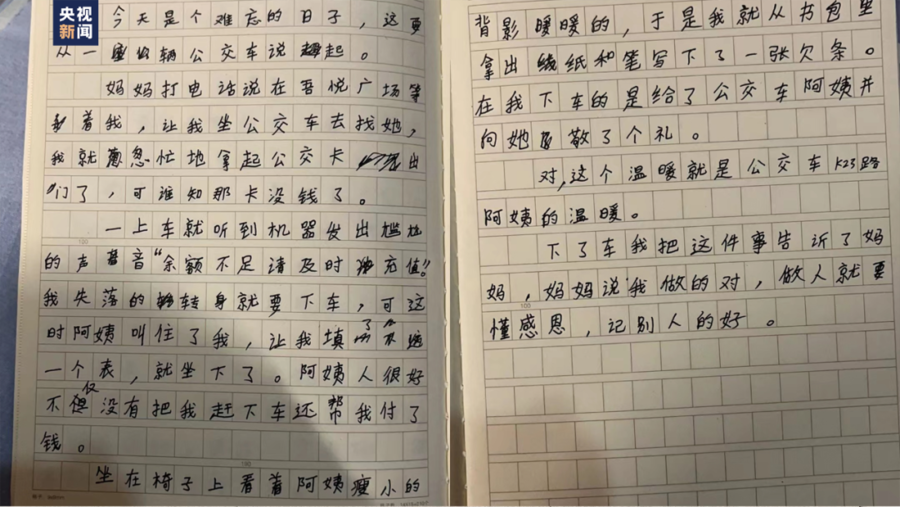 央视
新闻
今天是个难忘的日子，这要
从一辆公交车说起。
妈妈打电话说在吾悦广场等
着我，让我坐公交车去找她，
我就忽忙地拿起公交卡出
门了，可谁知那卡没钱了。
一上车就听到机器发出尴尬
的声音“余额不足请及时充值”！
我失落的转身就要下车，可这
时阿姨叫住了我，让我填了
一个表，就坐下了。阿姨人很好
不仅没有把我赶下车还帮我付了
钱。
坐在椅子上看着阿姨瘦小的
背影暖暖的，于是我就从书包里
拿出纸和笔写下了一张欠条。
在我下车的是给了公交车阿姨并
向她敬了个礼。
对，这个温暖就是公交车K23路
阿姨的温暖。
下了车我把这件事告诉了妈
妈，妈妈说我做的对，做人就要
懂感恩，记别人的好。